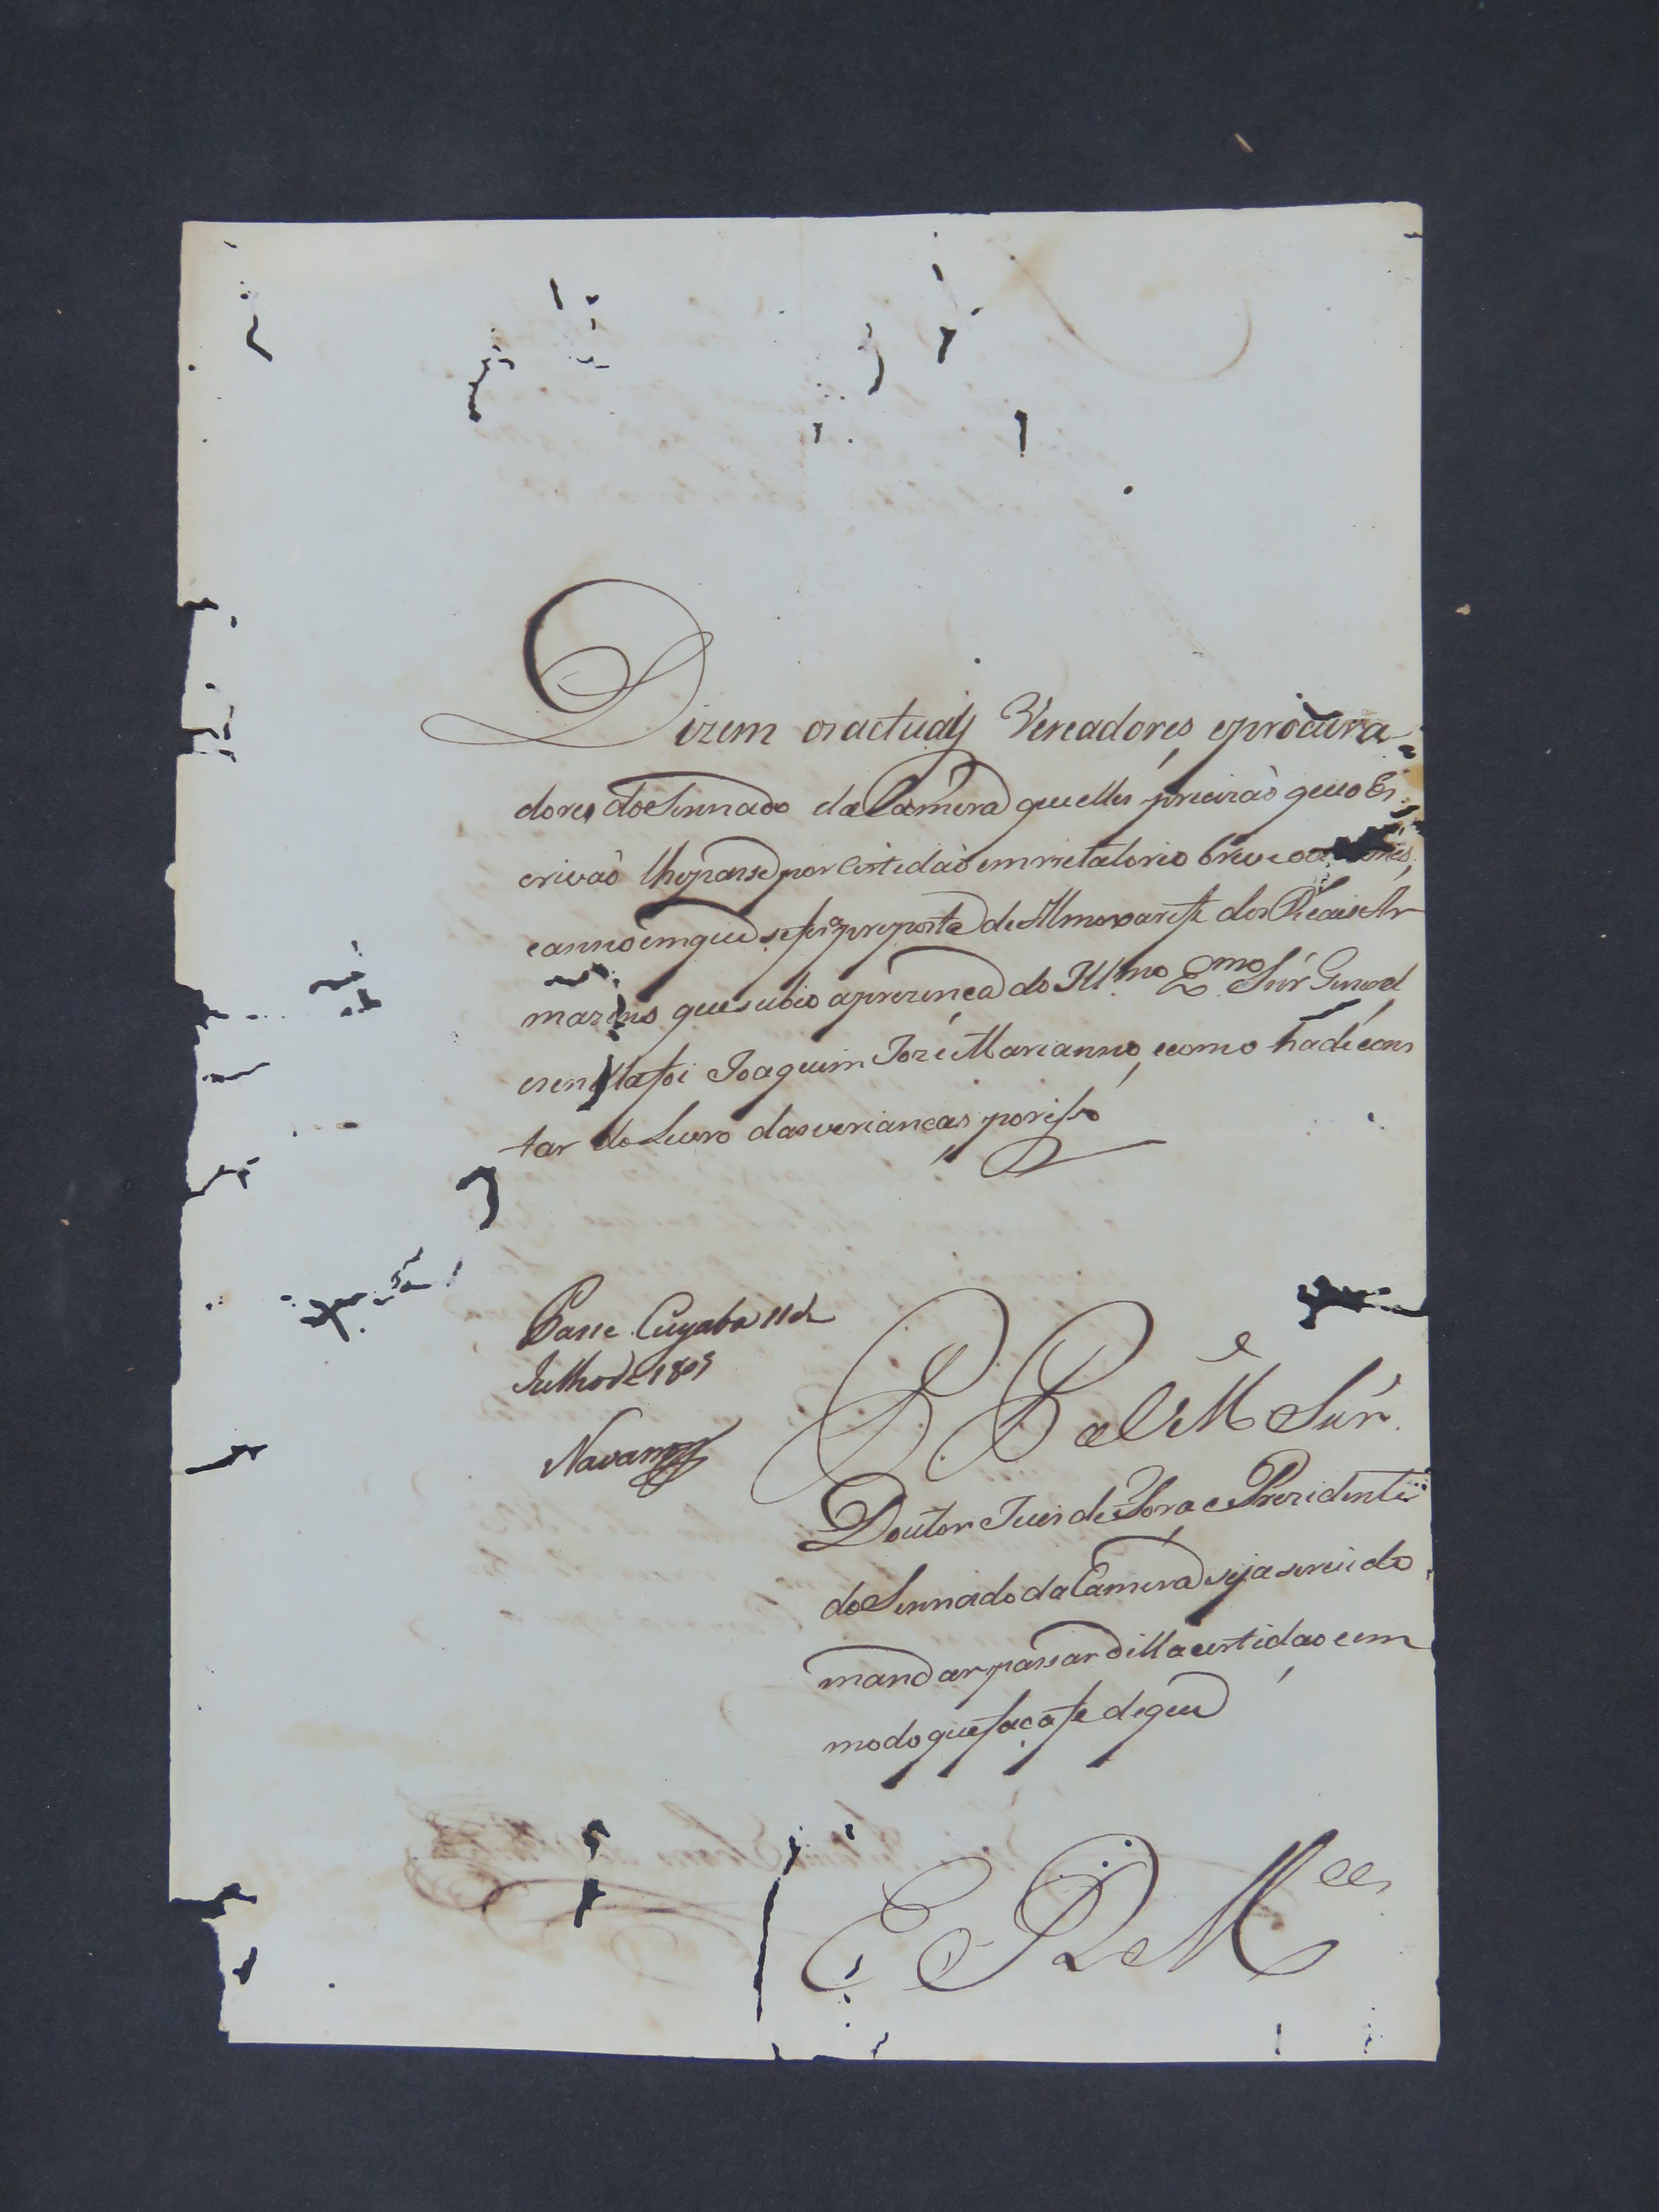 Dizem os actuaes Vereadores, e procura-
dores do Sennado da Camera que elles precizaõ que o Es
crivaõ lhe passe por Certidaõ em rrelatorio breve o
e anno em que se fes proposta de Almoxarife dos Reais Ar
mazens que subio aprezenca do Ill.mo E.mo Snr General
e se nella foi Joaquim Jozé Marianno, e como hade cons
tar do Livro das verianças por isso
Passe. Cuyaba 11 de
Julho de 1809
Navarro
P. P. a V M.e Snr.
Doutor Juis de Fora e Prezidente
do Sennado da Camera seja servido
mandar passar dilla certidao em
modo que faça fe de que
E R M.ce